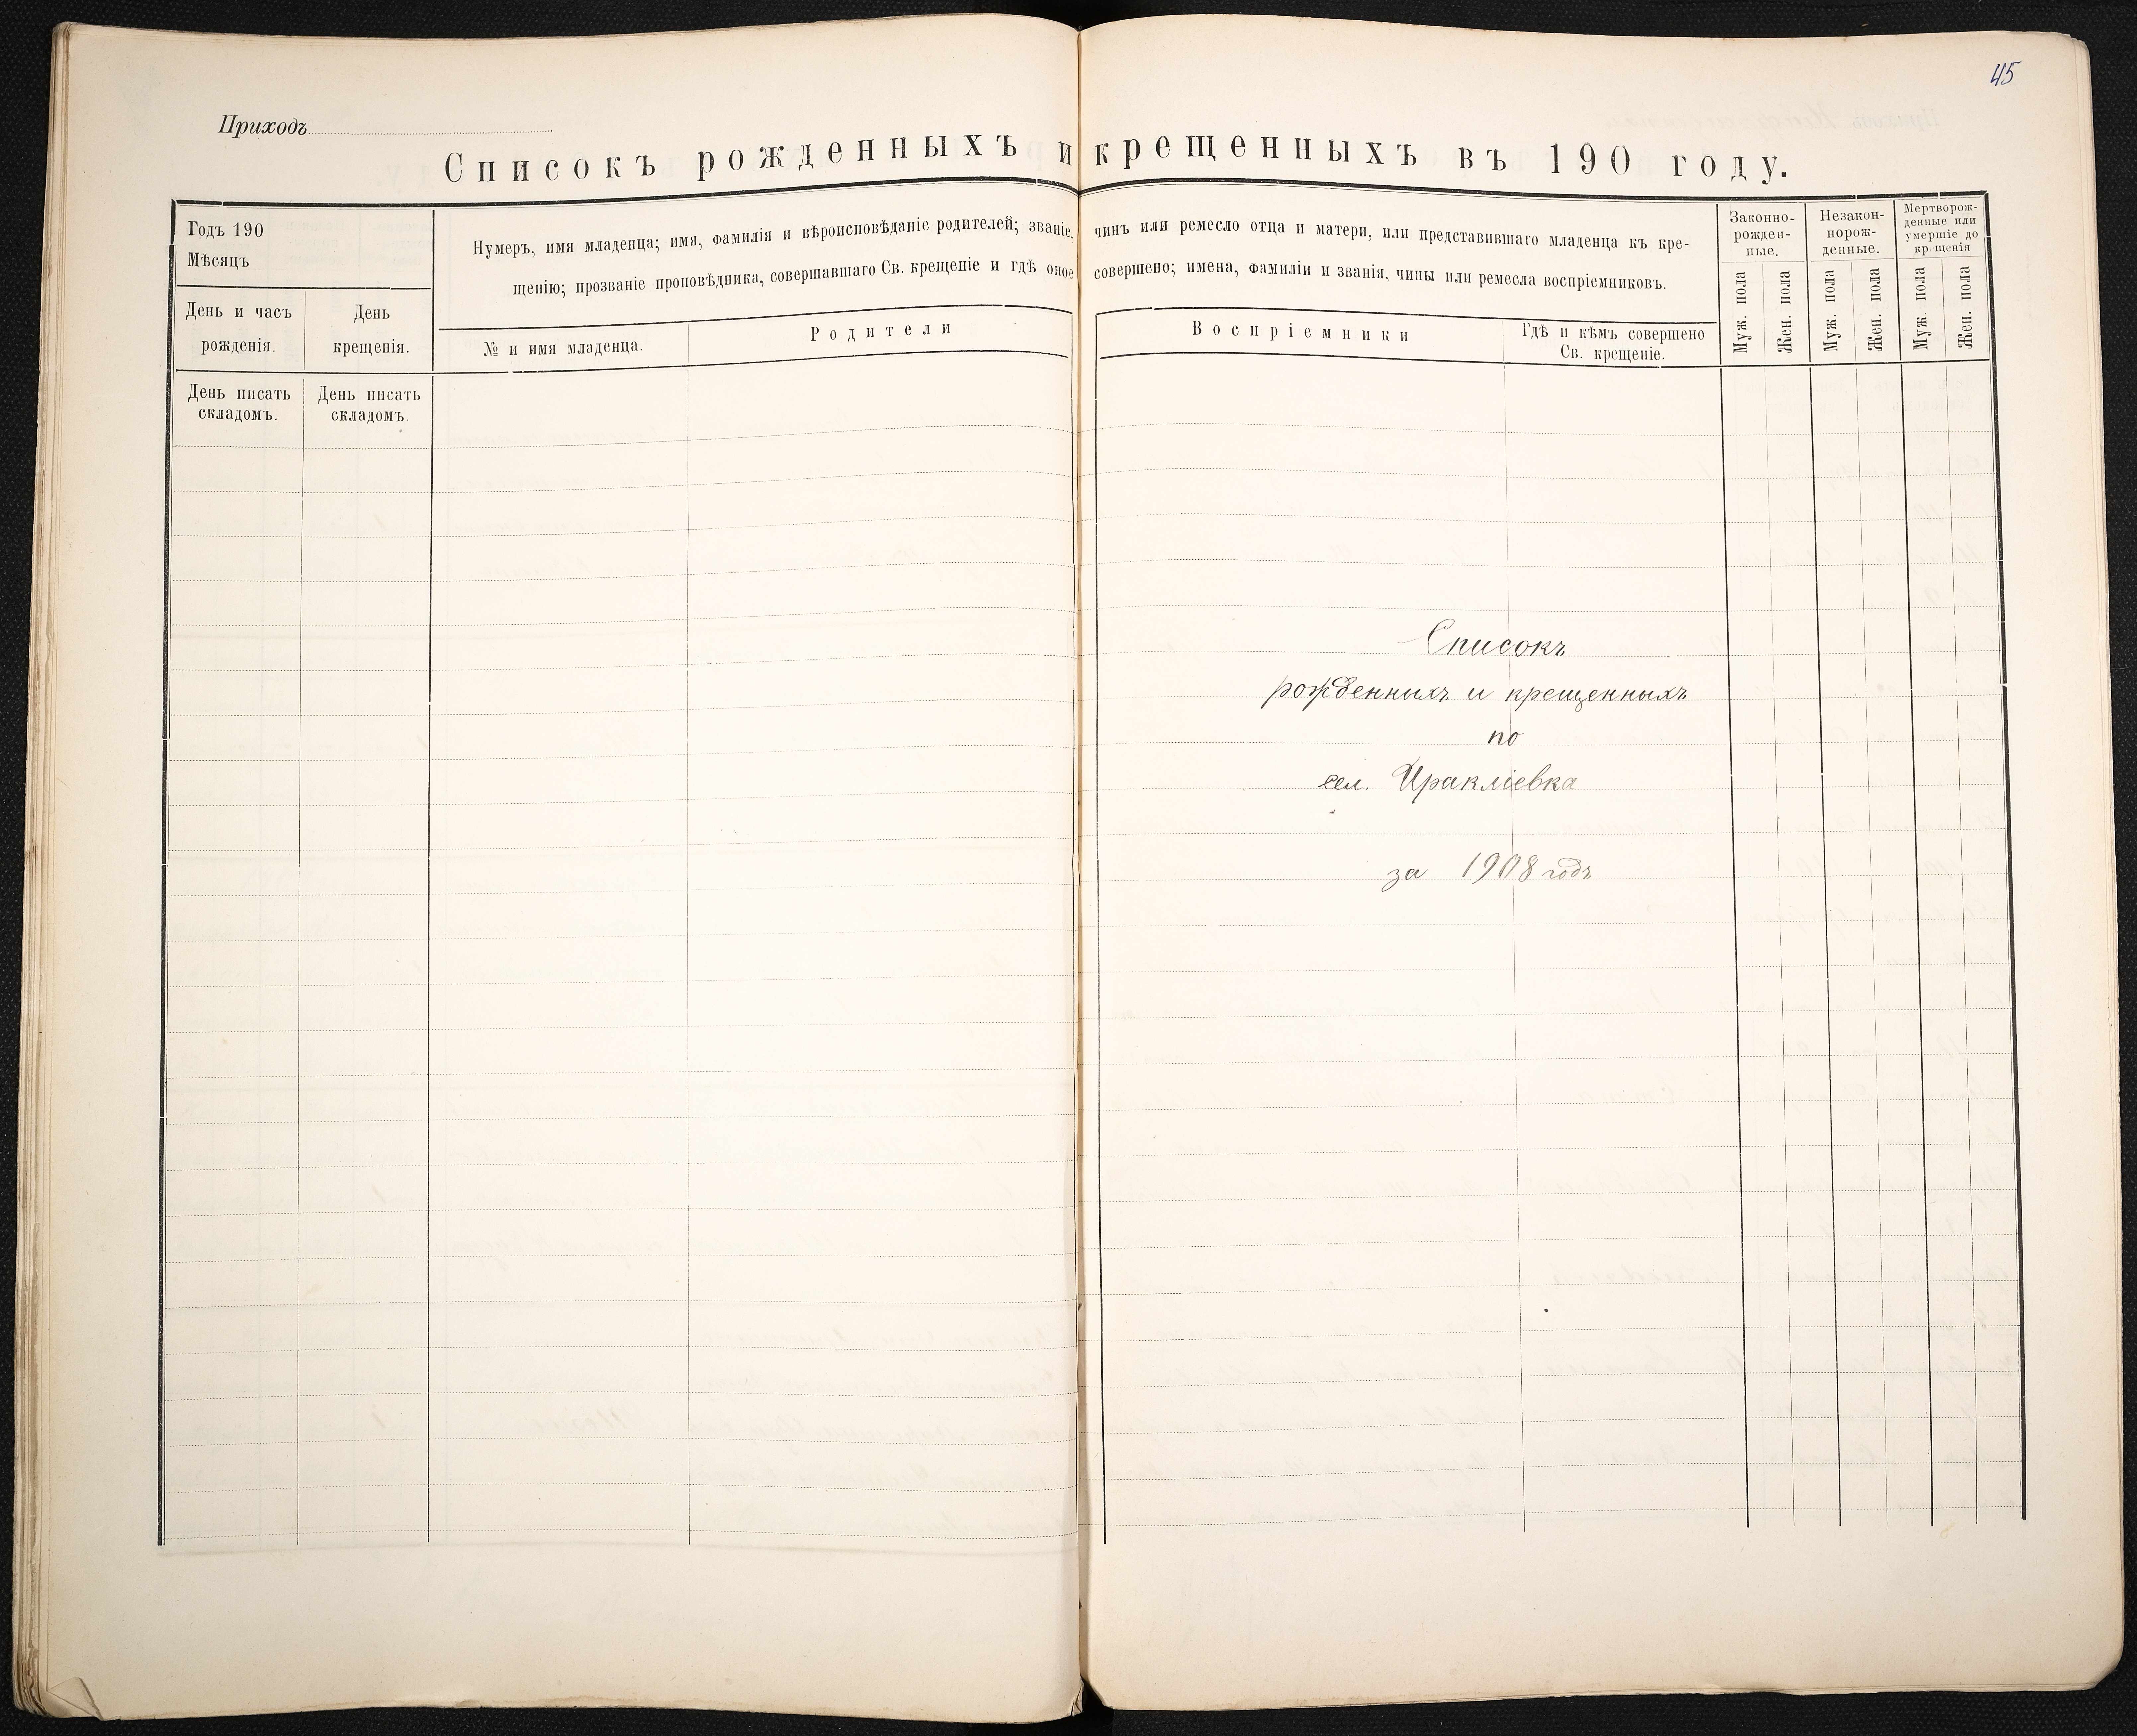 45
Приходъ
Списокъ рожденныхъ и крещенныхъ въ 190 году.
Годъ 190
Мѣсяцъ
День и часъ рожденія.
День крещенія.
Нумеръ, имя младенца; имя, фамилія и вѣроисповѣданіе родителей; званіе, чинъ или ремесло отца и матери, или представившаго младенца къ кре-
щенію; прозваніе проповѣдника, совершавшаго Св. крещеніе и гдѣ оное совершено; имена, фамиліи и званія, чины или ремесла воспріемниковъ.
№ и имя младенца.
Родители
Воспріемники
Гдѣ и кѣмъ совершено
Св. крещеніе.
Законно-
рожден-
ные.
Незакон-
норож-
денные.
Мертворож-
денные или
умершіе до
крещенія
Муж. пола
Жен. пола
Муж. пола
Жен. пола
Муж. пола
Жен. пола
День писать
складомъ.
День писать
складомъ.
Списокъ
рожденныхъ и крещенныхъ
по
сел. Иракліевка
за 1908 годъ